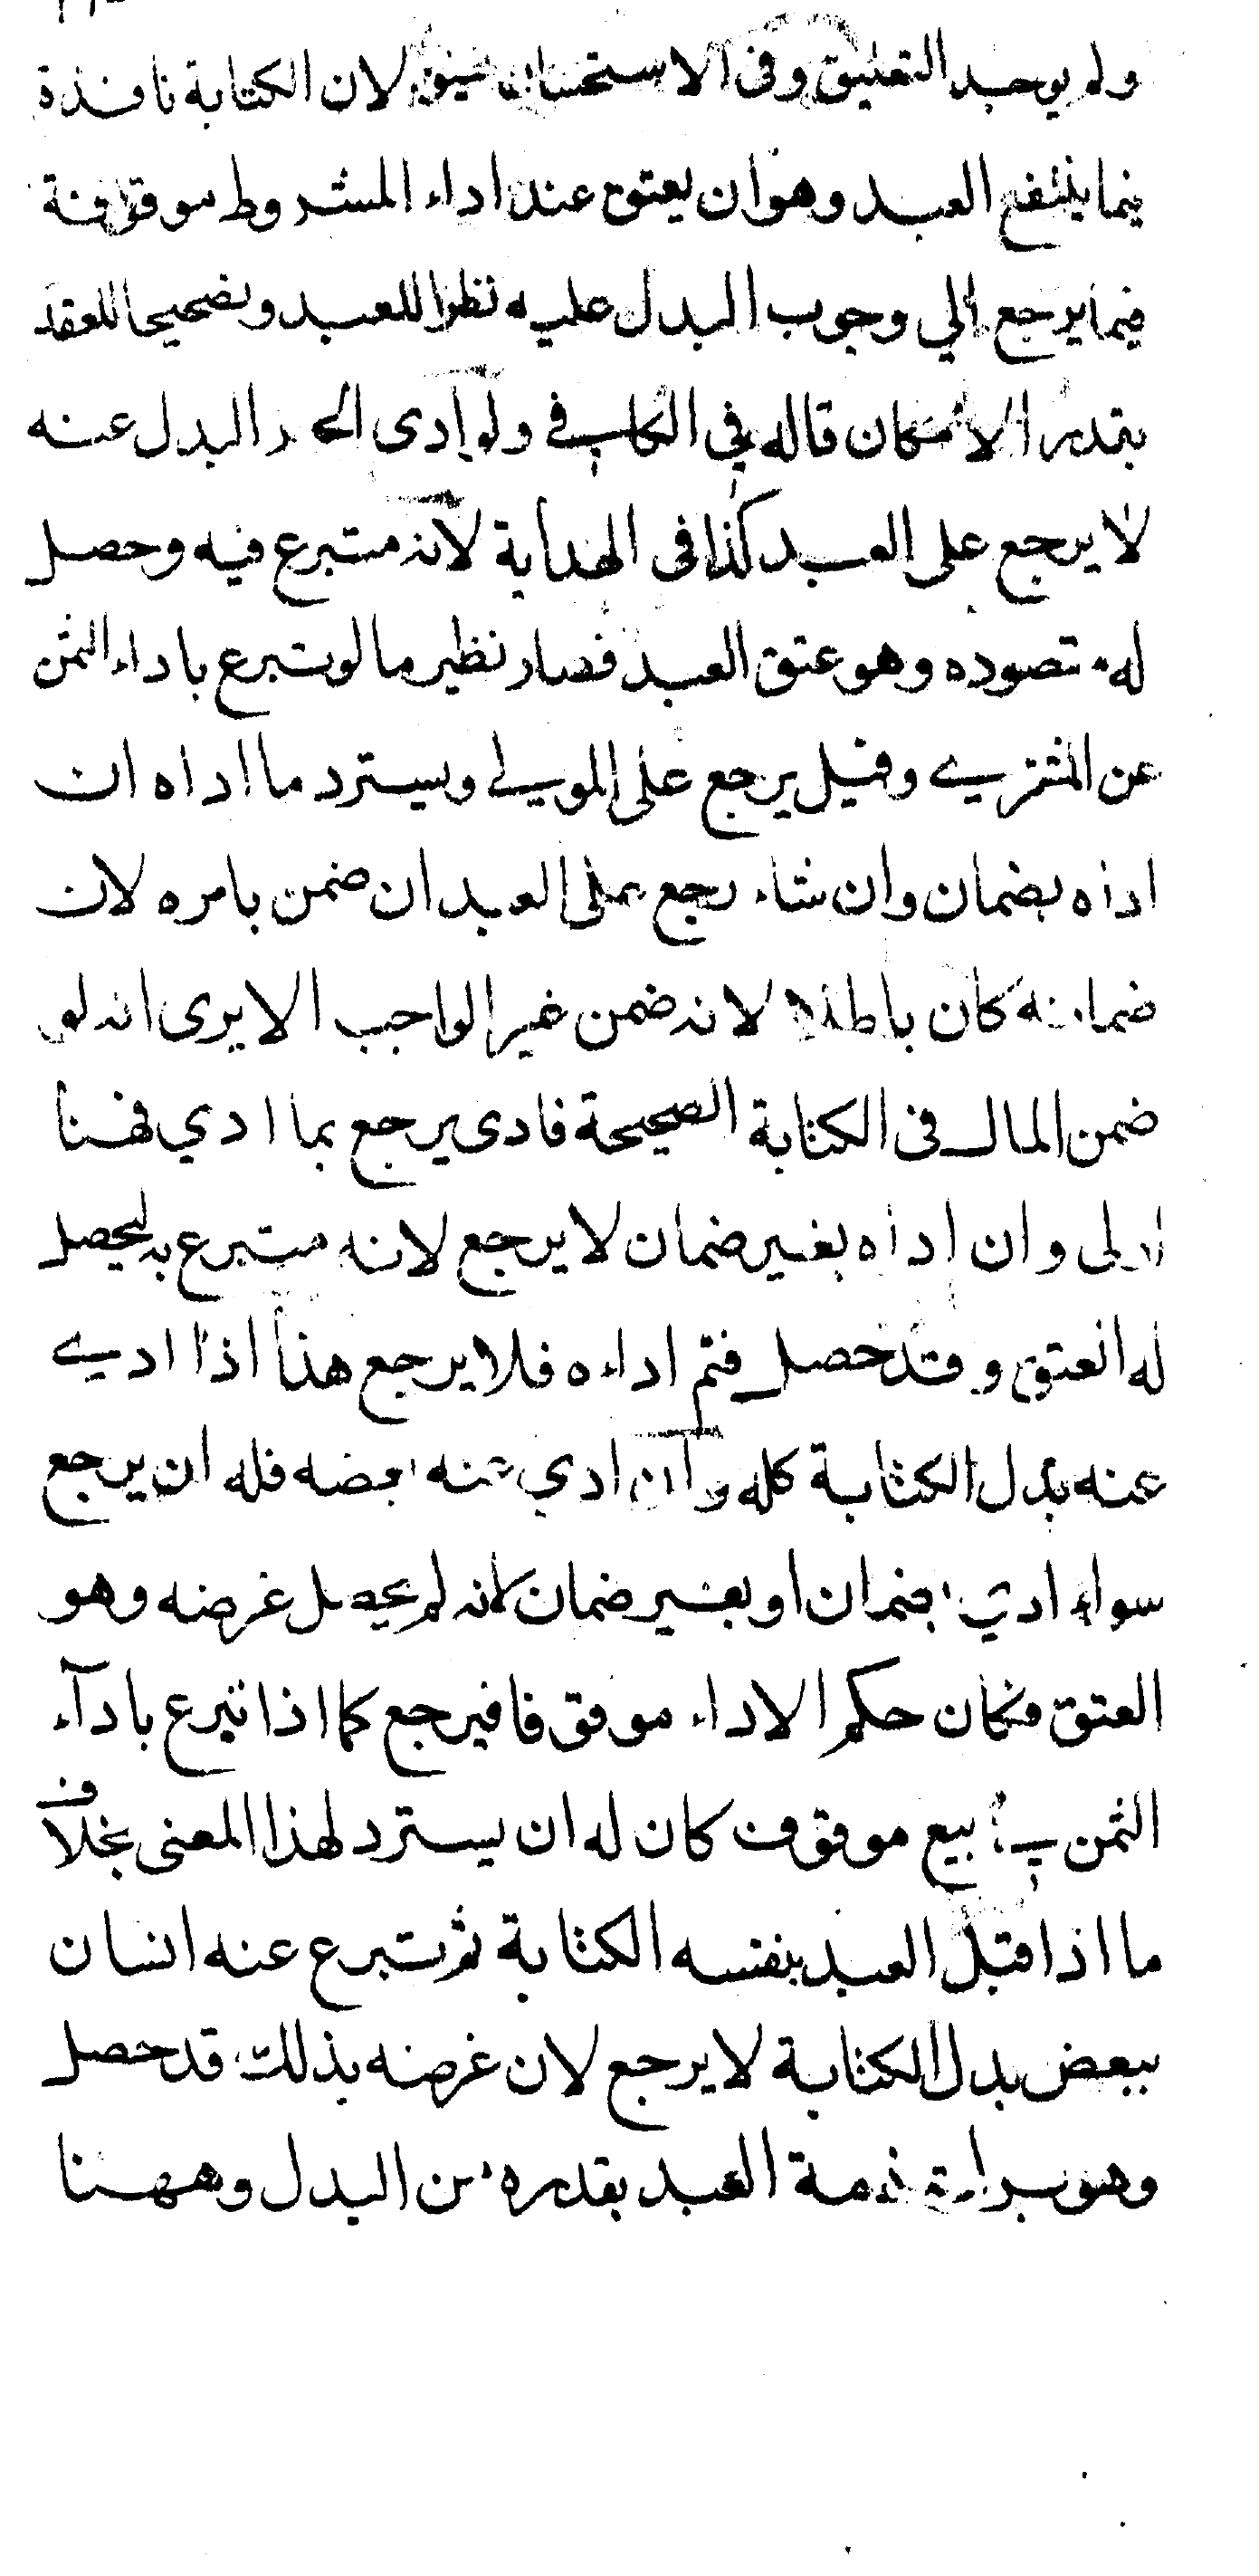 ولم يوجد التعليق وفى الاستحسان يعتق لان الكتابة نافذة
فيما ينفع العبد وهو ان يعتق عند اداء المشروط موقوفة
فيما يرجع الي وجوب البدل عليه نظرا للعبد وتصحيحا للعقد
بقدر الامكان قاله في الكافي ولو ادى الحر البدل عنه
لا يرجع على العبد كذا فى الهداية لانه متبرع فيه وحصل
له مقصوده وهو عتق العبد فصار نظير ما لو تبرع باداء الثمن
عن المشتري وقيل يرجع على المولي ويسترد ما اداه ان
اداه بضمان وان شاء رجع على العبد ان ضمن بامره لان
ضمانه كان باطلا لانه ضمن غير الواجب الا يرى انه لو
ضمن المال فى الكتابة الصحيحة فادى يرجع بما ادي فهنا
اولى وان اداه بغير ضمان لا يرجع لانه متبرع به ليحصل
له العتق وقد حصل فتم اداءه فلا يرجع هذا اذا ادي
عنه بدل الكتابة كله وان ادي عنه بعضه فله ان يرجع
سواء ادي بضمان او بغير ضمان لانه لم يحصل غرضه وهو
العتق فكان حكم الاداء موقوفا فيرجع كما اذا تبرع بادآء
الثمن في بيع موقوف كان له ان يسترد لهذا المعنى بخلاف
ما اذا قبل العبد بنفسه الكتابة ثم تبرع عنه انسان
ببعض بدل الكتابة لا يرجع لان غرضه بذلك قد حصل
وهو براءة ذمة العبد بقدره من البدل وههنا